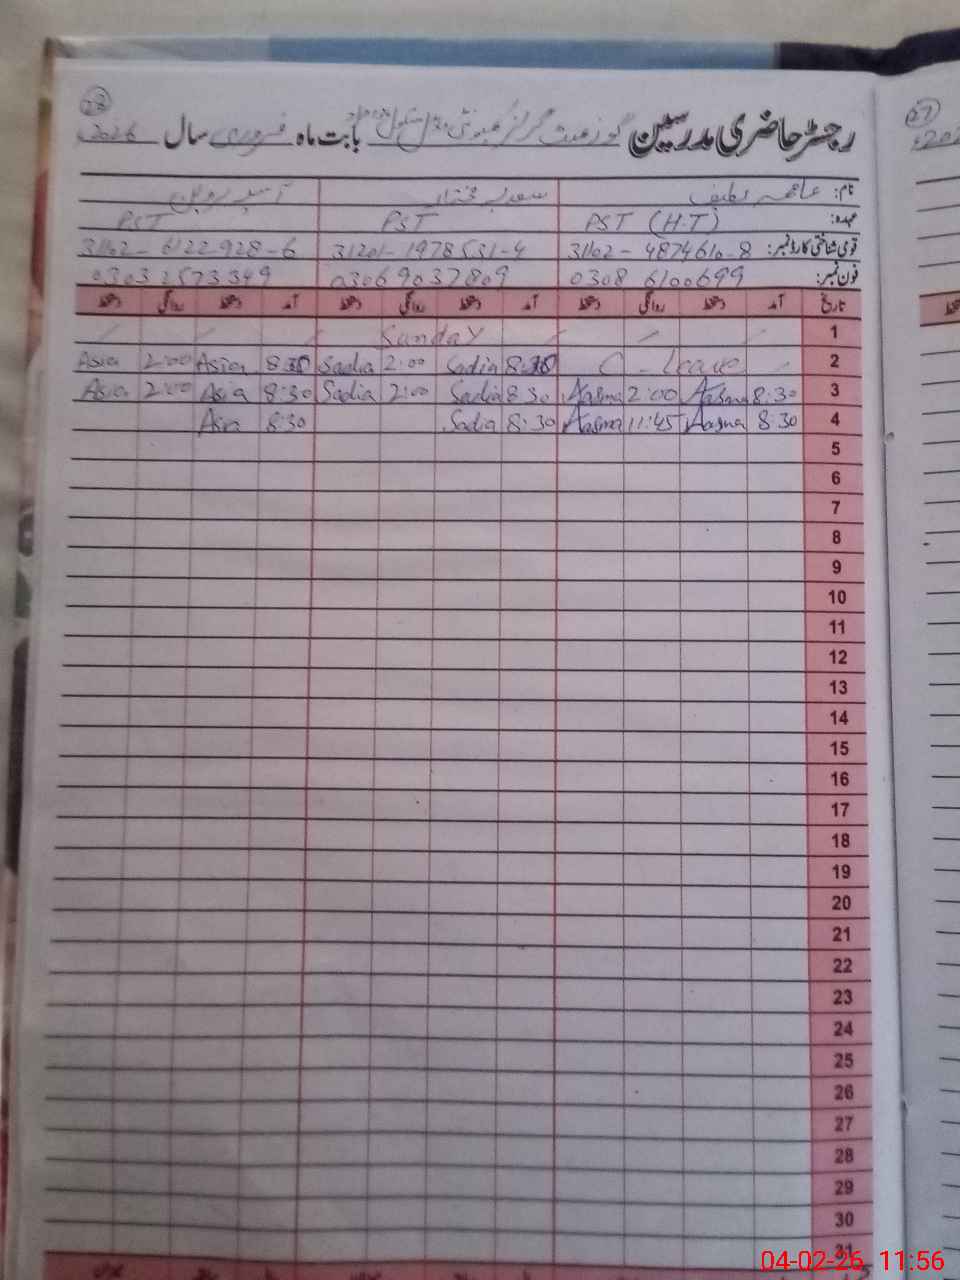 28
رجسٹر حاضری مدرسین گورنمنٹ گرلز کمیونٹی سکول بابت ماہ فروری سال 2026
نام: عاصمہ لطیف سعدیہ مختار آسیہ پروین
عہدہ: PST (H.T) PST PST
قومی شناختی کارڈ نمبر: 31102-4874610-8 31201-1978531-4 31102-6122928-6
فون نمبر: 0308 6100699 0306 9037809 0303 2573349
تاریخ آمد دستخط روانگی دستخط آمد دستخط روانگی دستخط آمد دستخط روانگی دستخط
1 Sunday
Asia 2:00 Asia 8:30 Sadia 2:00 Sadia 8:30 C. Leave 2
Asia 2:00 Asia 8:30 Sadia 2:00 Sadia 8:30 Aasma 2:00 Aasma 8:30 3
Asia 8:30 Sadia 8:30 Aasma 11:45 Aasma 8:30 4
5
6
7
8
9
10
11
12
13
14
15
16
17
18
19
20
21
22
23
24
25
26
27
28
29
30
31
27
04-02-26 11:56